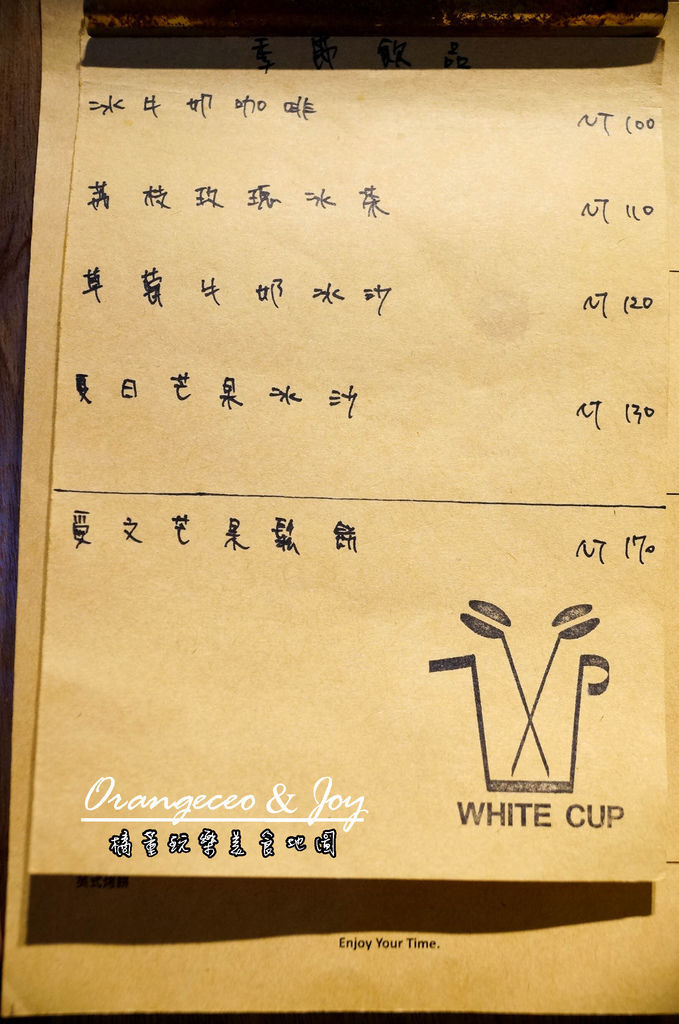 季節飲品
冰牛奶咖啡 NT 100
荔枝玫瑰冰茶 NT 110
草莓牛奶冰沙 NT 120
夏日芒果冰沙 NT 130
愛文芒果鬆餅 NT 170
WHITE CUP
Orangeceo & Joy
橘董玩樂美食地圖
英式烤餅
Enjoy Your Time.